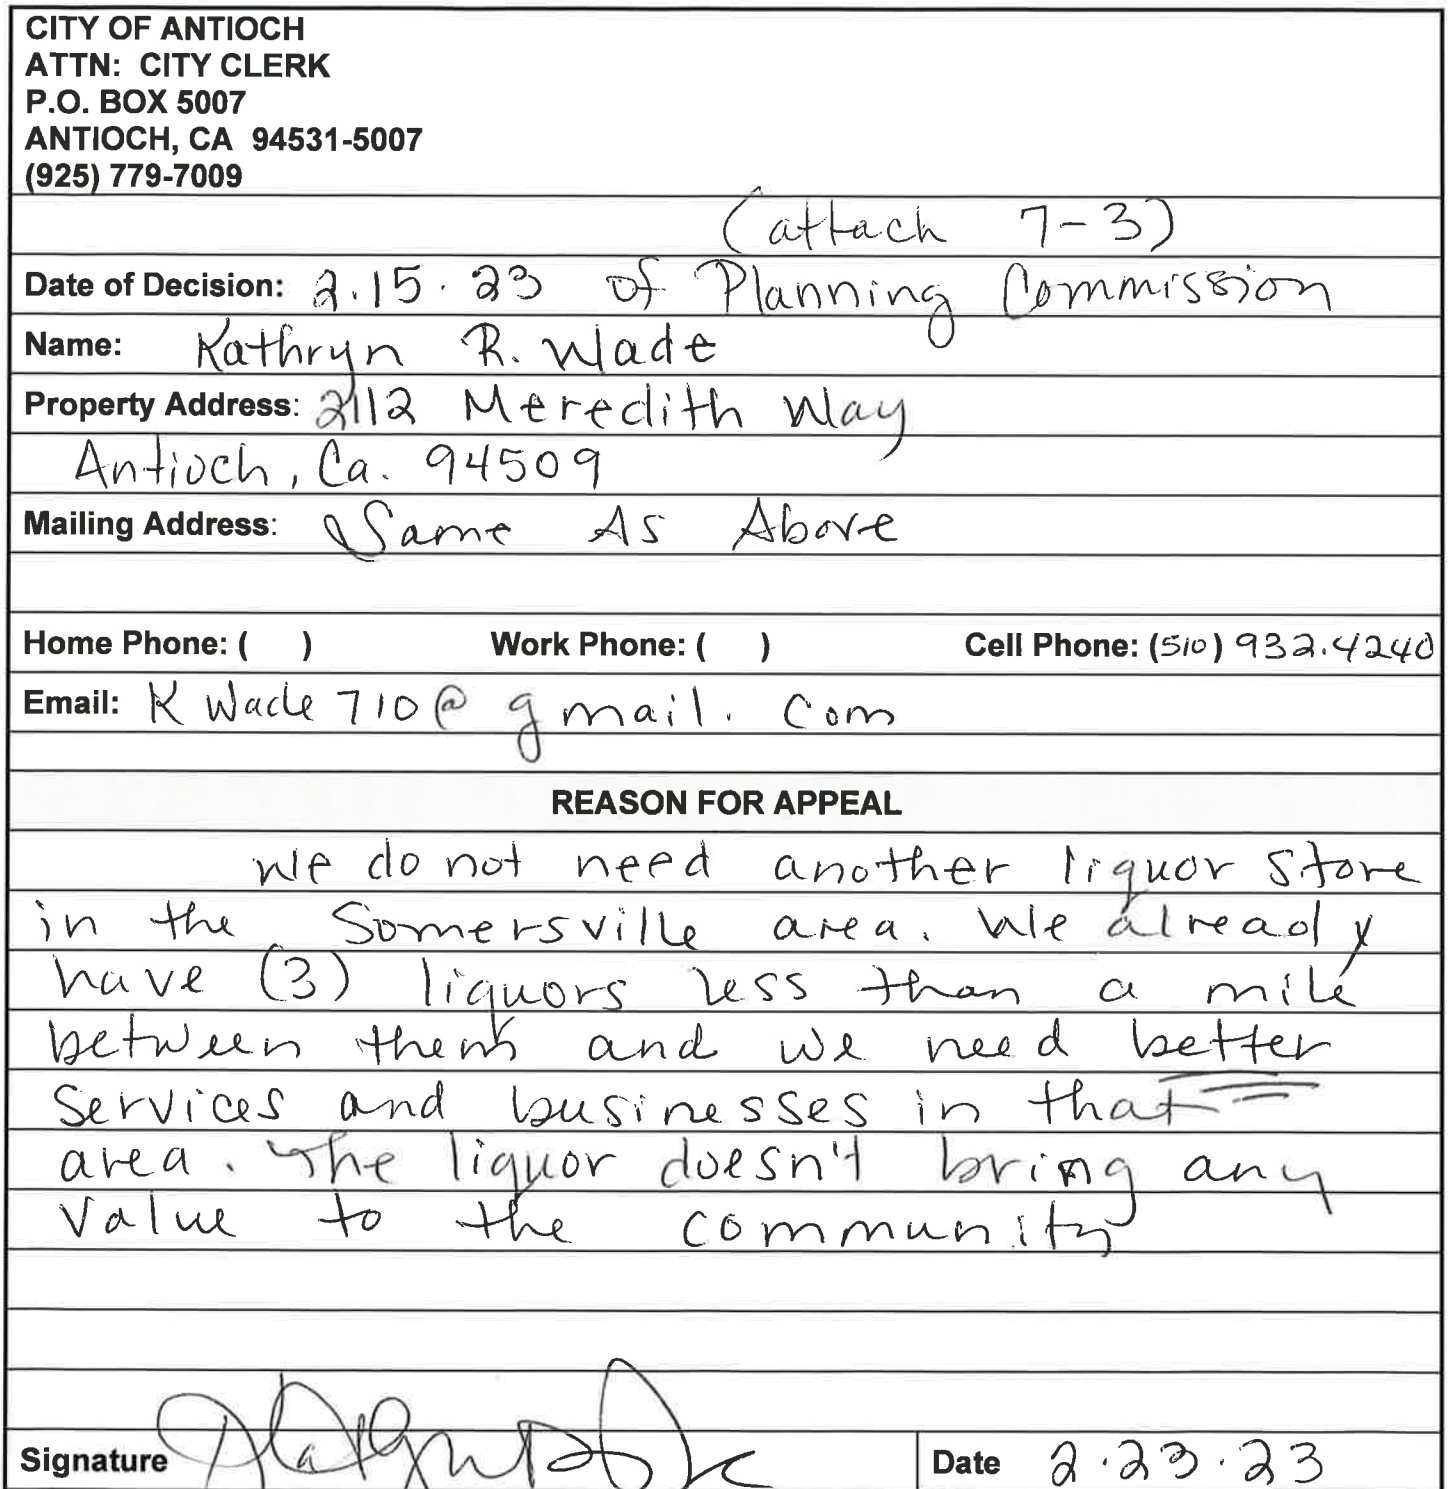 CITY OF ANTIOCH
ATTN: CITY CLERK
P.O. BOX 5007
ANTIOCH, CA 94531-5007
(925) 779-7009
(attach 7-3)
Date of Decision: 2.15.23 of Planning Commission
Name: Kathryn R. Wade
Property Address: 2112 Meredith Way
Antioch, Ca. 94509
Mailing Address: Same As Above
Home Phone: ( ) Work Phone: ( ) Cell Phone: (510) 932.4240
Email: KWade710@gmail.com
REASON FOR APPEAL
We do not need another liquor store
in the Somersville area. We already
have (3) liquors less than a mile
between them and we need better
services and businesses in that
area. The liquor doesn't bring any
value to the community
Signature
Date 2.23.23